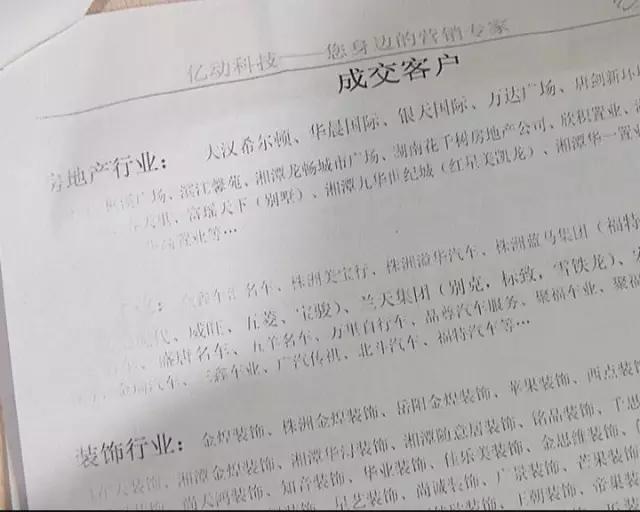 亿动科技——您身边的营销专家
成交客户
房地产行业： 大汉希尔顿、华晨国际、银天国际、万达广场、唐剑新
广场、滨江馨苑、湘潭龙畅城市广场、湖南花千树房地产公司、欣积置业、
富瑶天下（别墅）、湘潭九华世纪城（红星美凯龙）、湘潭华一置业
置业等…
名车、株洲美宝行、株洲溢华汽车、株洲蓝马集团（福特
现代、威旺、五菱、宝骏）、兰天集团（别克，标致，雪铁龙）、
盛唐名车、五羊名车、万里自行车、品尊汽车服务、聚福车业、聚福
汽车、三鑫车业、广汽传祺、北斗汽车、福特汽车等…
装饰行业： 金煌装饰、株洲金煌装饰、岳阳金煌装饰、苹果装饰、西点装饰
装饰、湘潭金煌装饰、湘潭华浔装饰、湘潭随意居装饰、铭品装饰、千思
装饰、尚天鸿装饰、知音装饰、华业装饰、佳乐美装饰、金思维装饰、
装饰、星艺装饰、尚诚装饰、广景装饰、芒果装饰
装饰、王朝装饰、帝果装